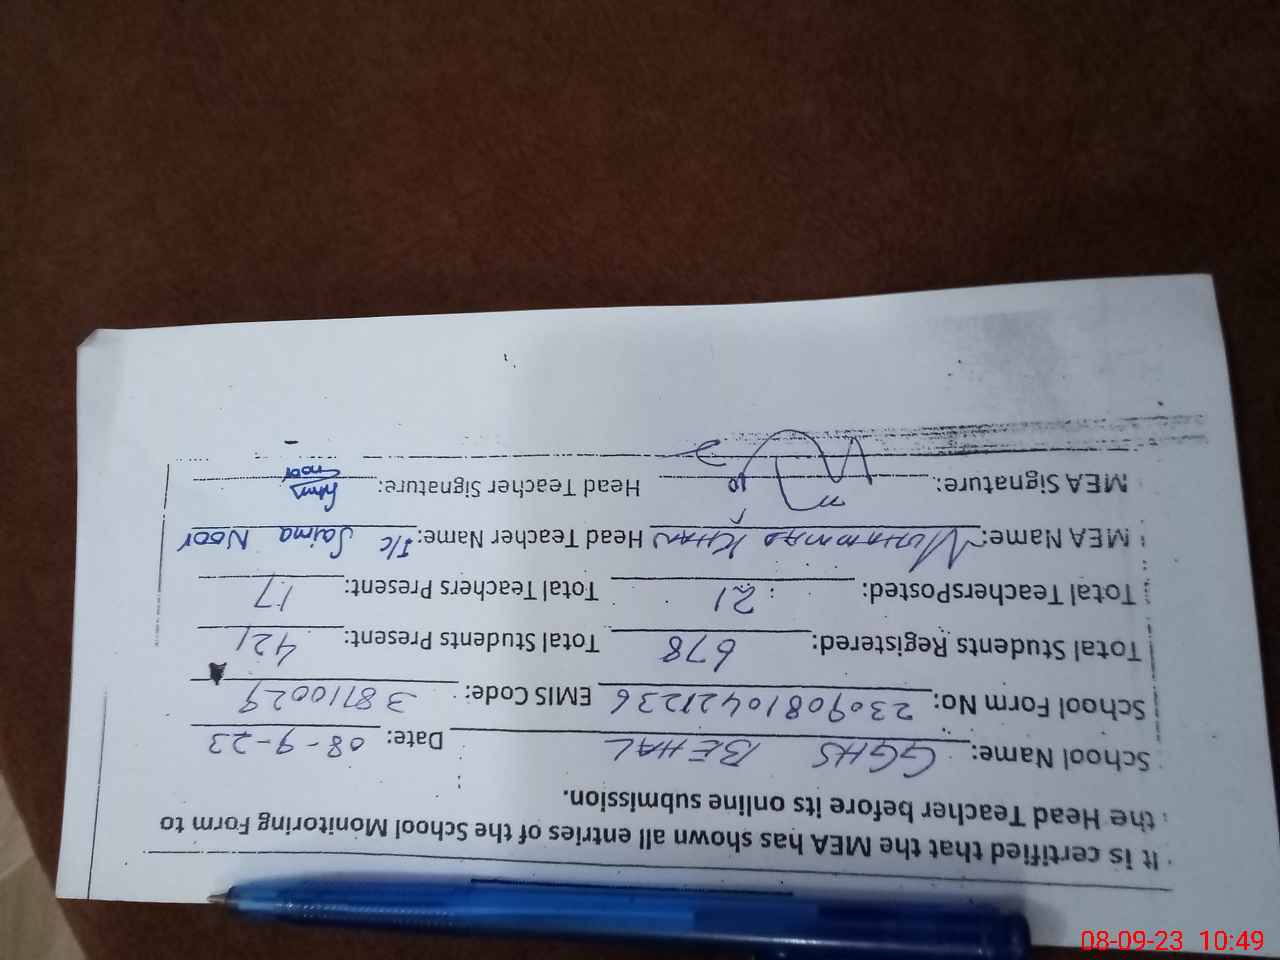 It is certified that the MEA has shown all entries of the School Monitoring Form to
the Head Teacher before its online submission.
School Name: GGHS BEHAL Date: 08-9-23
School Form No: 23090810421236 EMIS Code: 38710029
Total Students Registered: 678 Total Students Present: 421
Total TeachersPosted: 21 Total Teachers Present: 17
MEA Name: MUHAMMAD KHAN Head Teacher Name: I/c Saima Noor
MEA Signature: Head Teacher Signature: noor
08-09-23 10:49